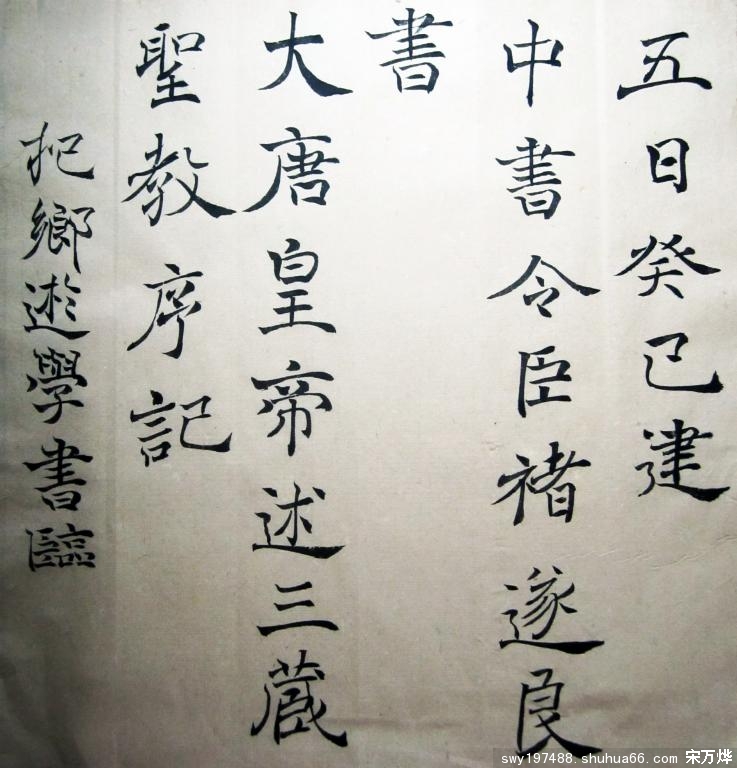 五日癸巳建
中書令臣褚遂良
書
大唐皇帝述三藏
聖教序記
杞鄉逰學書臨
swy197488. shuhua66. com 宋万烨